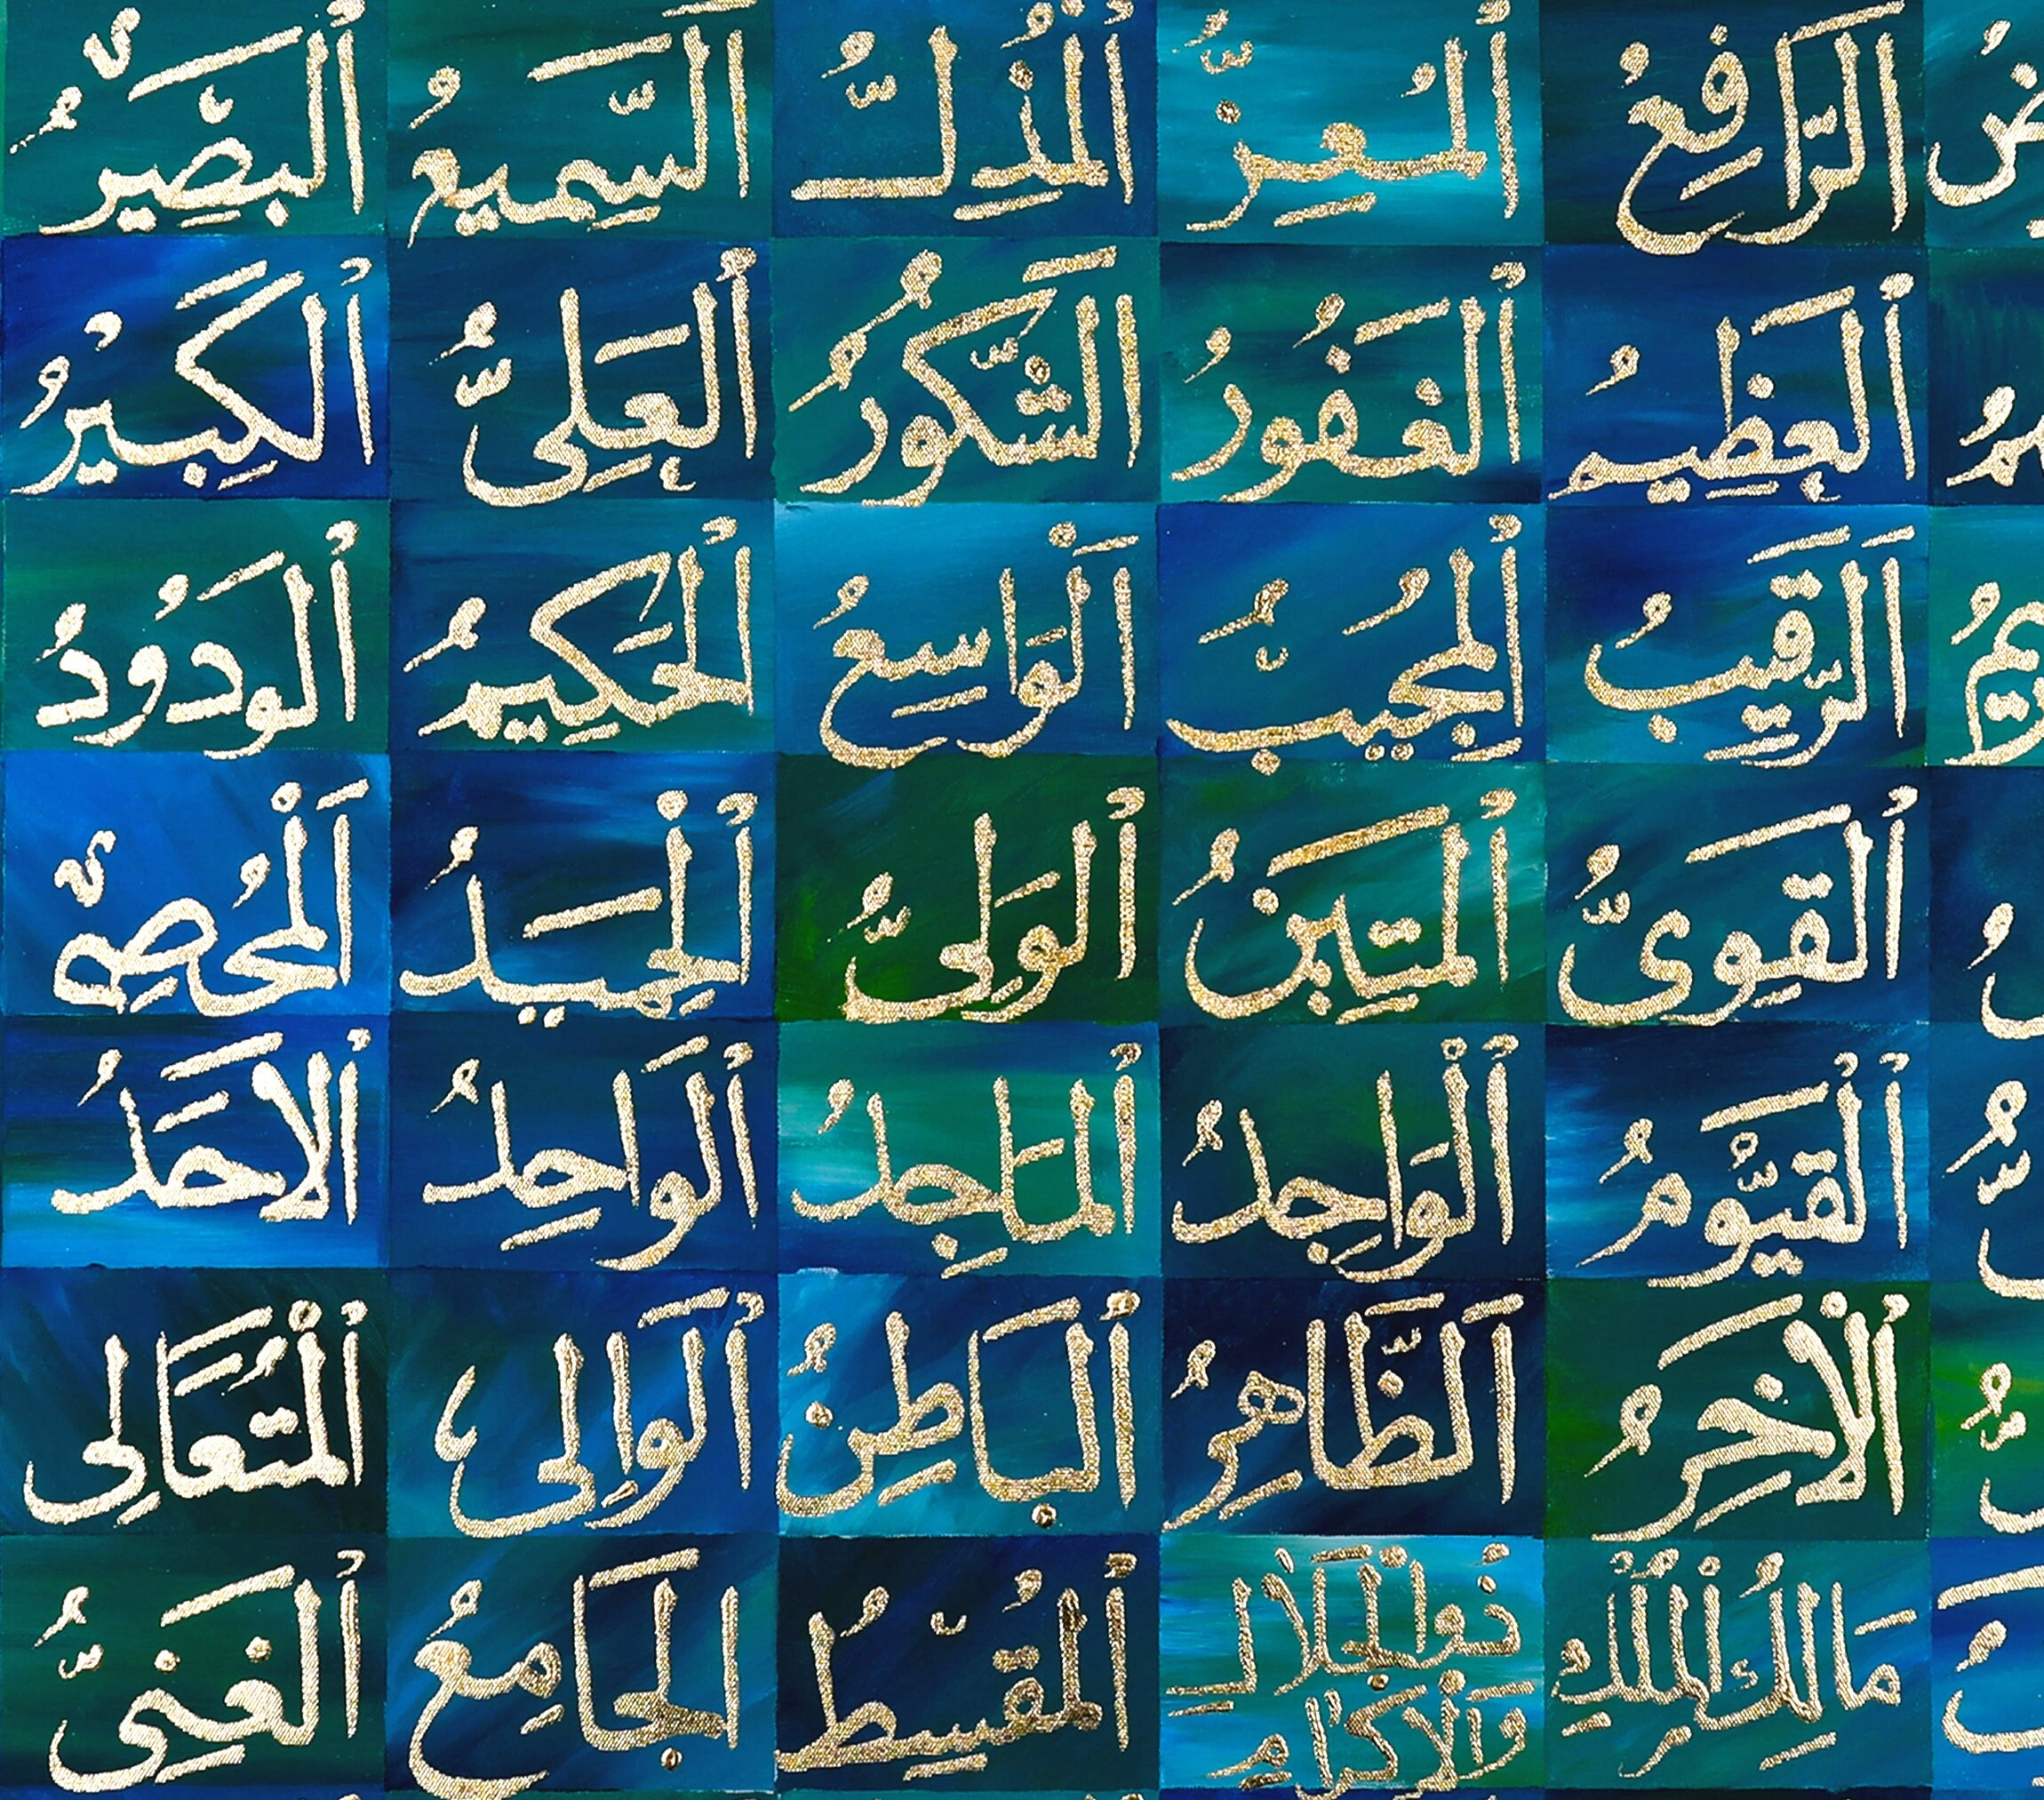 الرَّافِعُ
اَلْمُعِزُّ
اَلْمُذِلُّ
السَّمِيعُ
اَلْبَصِيرُ
اَلْعَظِيمُ
اَلْغَفُورُ
الشَّكُورُ
اَلْعَلِىُّ
اَلْكَبِيرُ
اَلرَّقِيبُ
اَلْمُجِيبُ
اَلْوَاسِعُ
اَلْحَكِيمُ
اَلْوَدُودُ
اَلْقَوِىُّ
اَلْمَتِينُ
اَلْوَلِىُّ
اَلْحَمِيدُ
اَلْمُحْصِى
اَلْقَيُّومُ
اَلْوَاجِدُ
اَلْمَاجِدُ
اَلْوَاحِدُ
اَلْاَحَدُ
اَلْاٰخِرُ
اَلظَّاهِرُ
اَلْبَاطِنُ
اَلْوَالِى
اَلْمُتَعَالِى
مَالِكُ الْمُلْكِ
ذُو الْجَلَالِ
وَالْاِكْرَامِ
اَلْمُقْسِطُ
الْجَامِعُ
اَلْغَنِىُّ